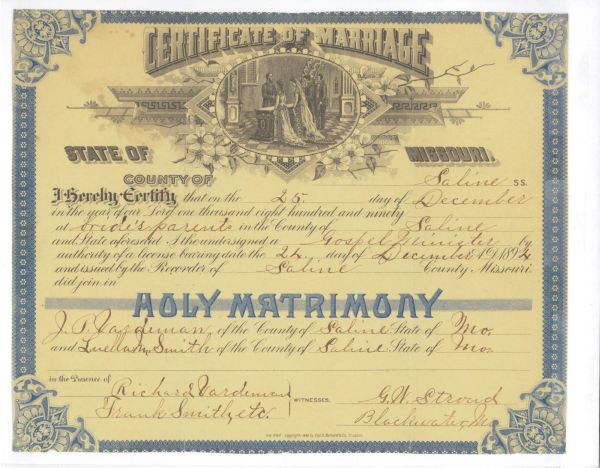 CERTIFICATE OF MARRIAGE
STATE OF MISSOURI.
COUNTY OF Saline SS.
I Hereby Certify that on the 25 day of December
in the year of our Lord one thousand eight hundred and ninety
at bride's parents in the County of Saline
and State aforesaid I the undersigned a Gospel Minister by
authority of a License bearing date the 24 day of December A.D. 1894
and issued by the Recorder of Saline County Missouri
did join in
HOLY MATRIMONY
J. P. Vardeman of the County of Saline State of Mo.
and Smith of the County of Saline State of Mo.
in the Presence of
Richard Vardeman
Frank Smith, etc. WITNESSES.
G. W. Stroud
Blackwater, Mo.